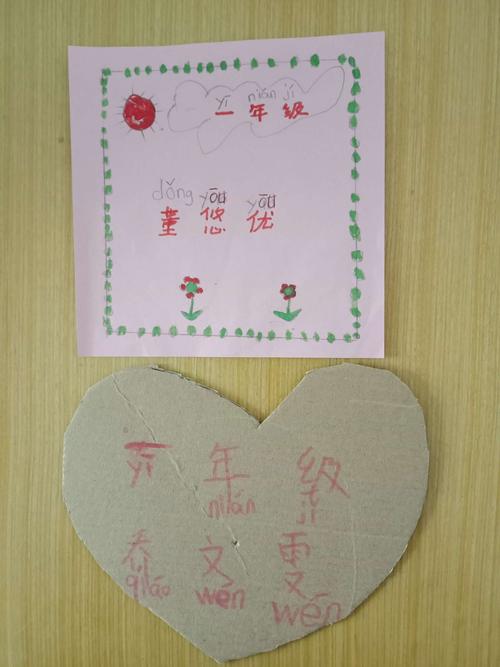 yī nián jí
一年级
dǒng yōu yōu
董悠优
一年级
yī nián jí
乔文雯
qiáo wén wén